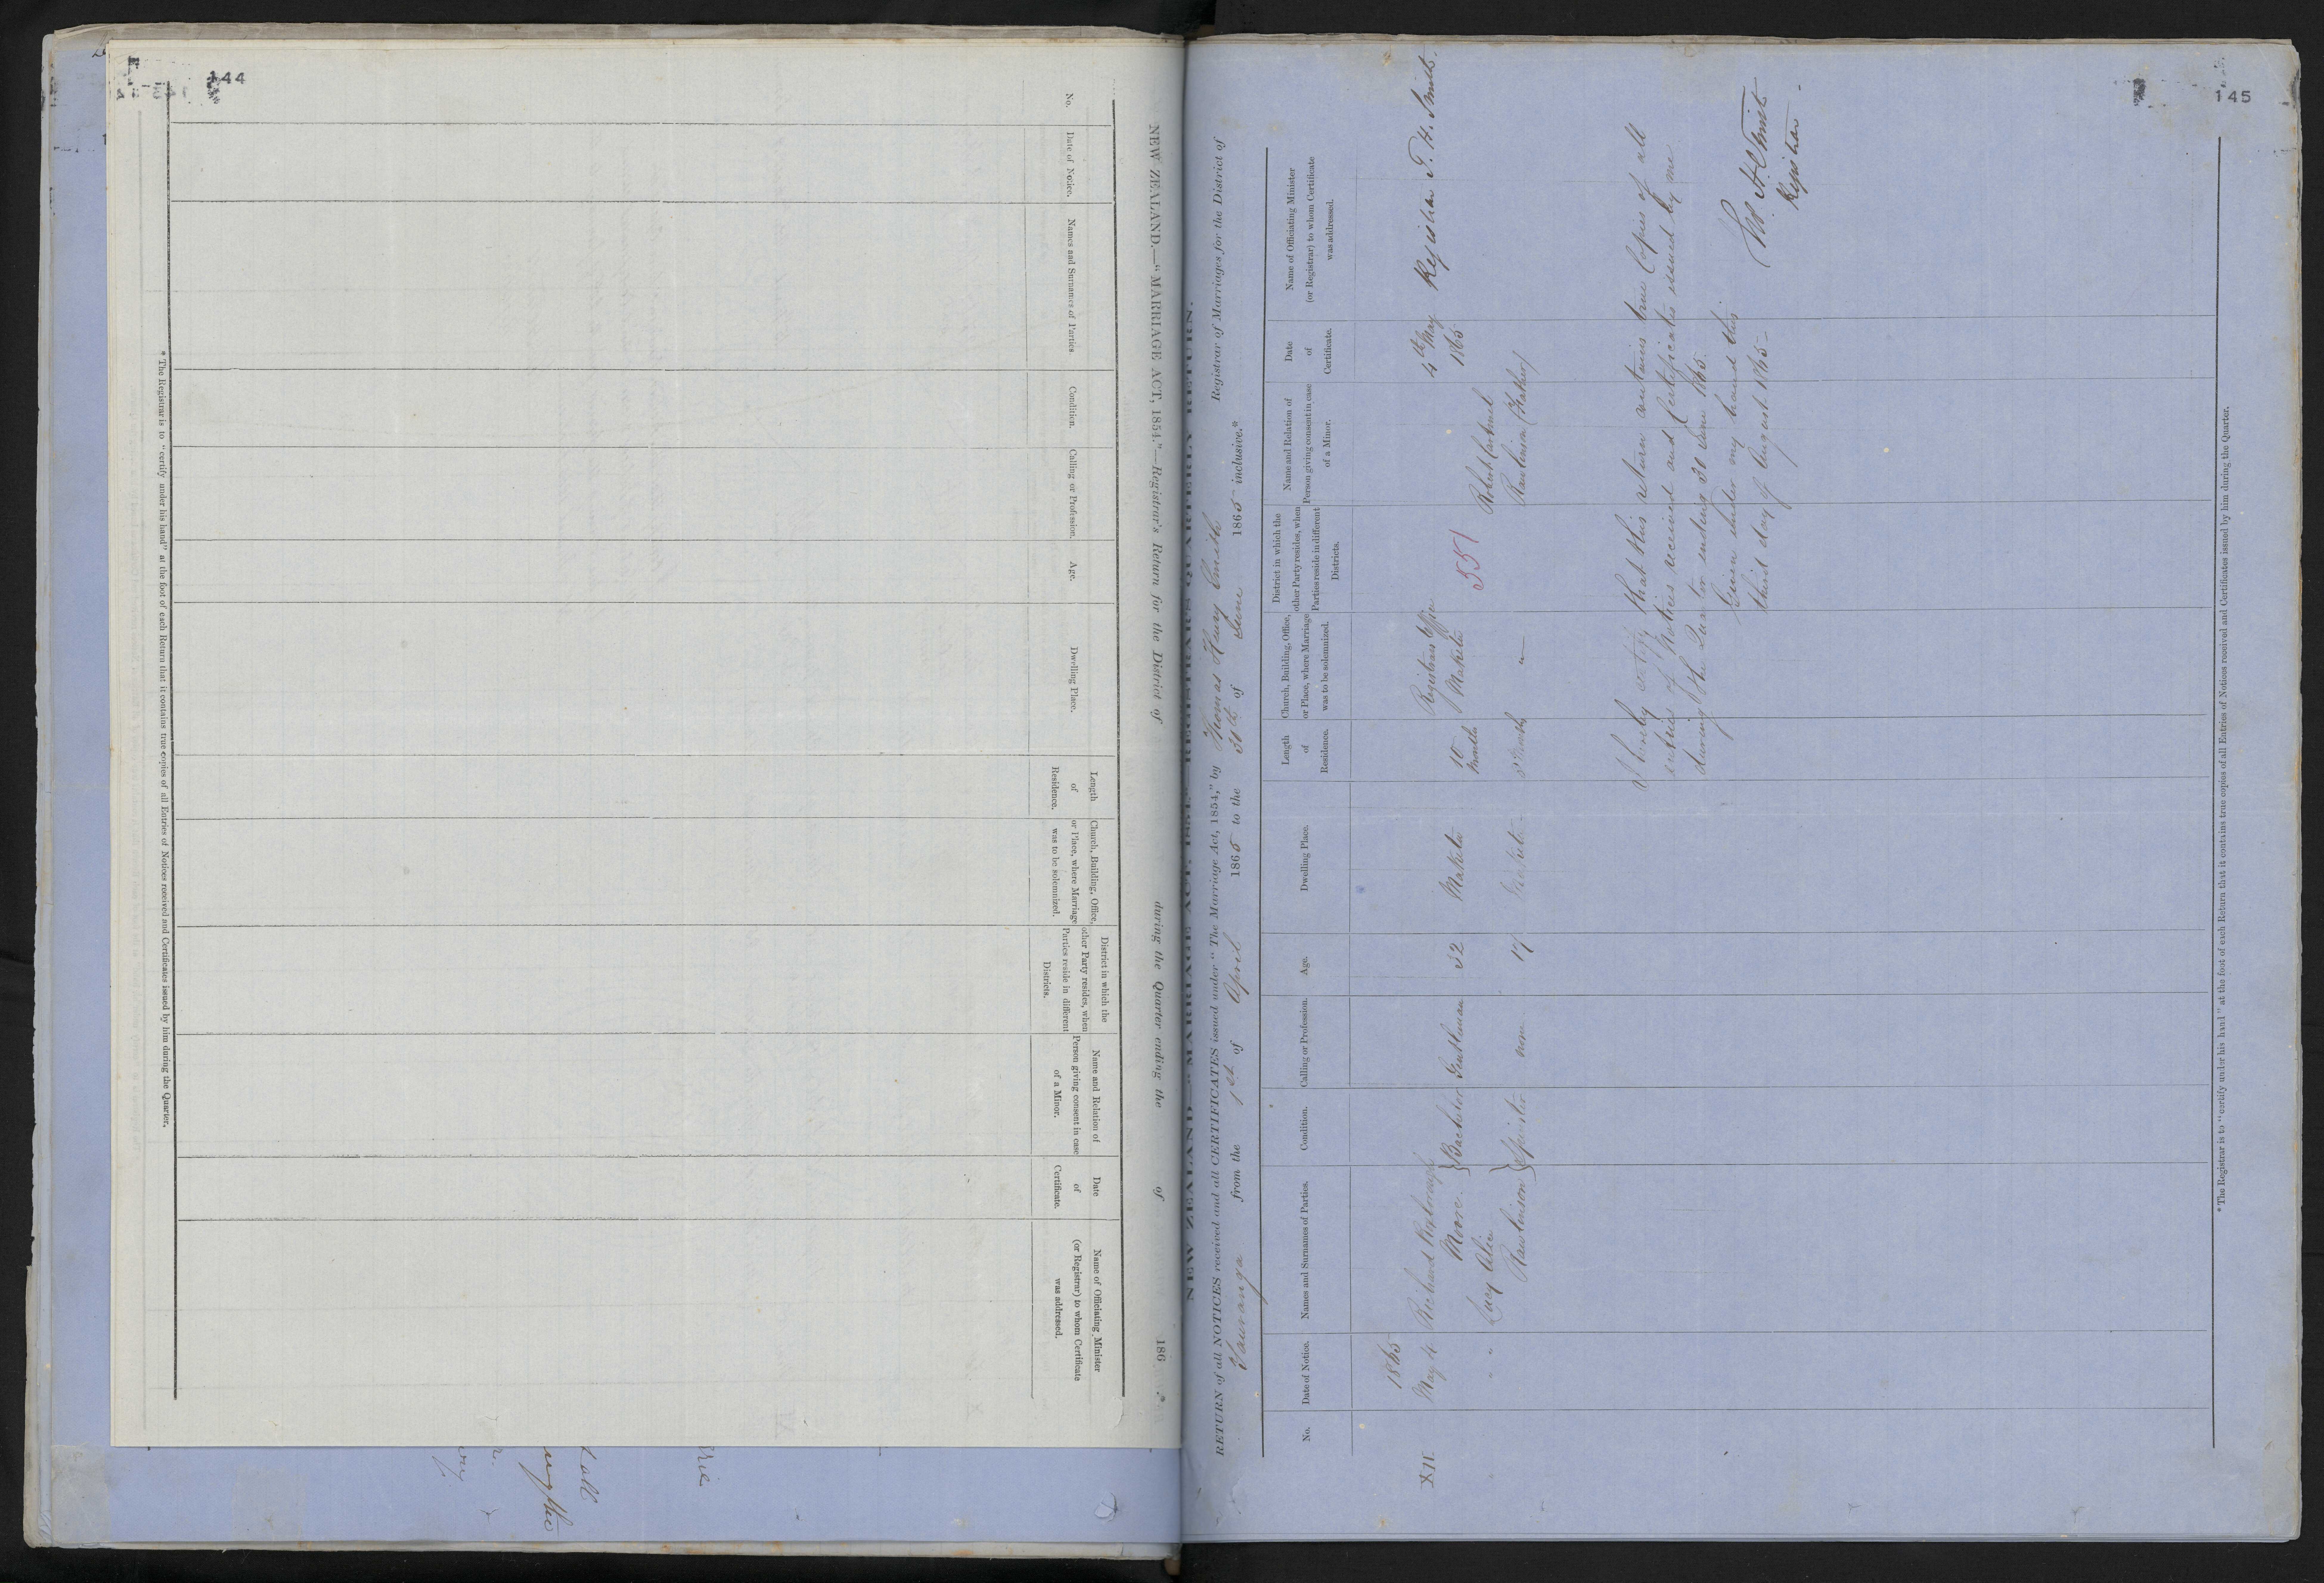 144
NEW ZEALAND.—"MARRIAGE ACT, 1854."—Registrar's Return for the District of during the Quarter ending the of 186 .*
No.
Date of Notice.
Names and Surnames of Parties
Condition.
Calling or Profession.
Age.
Dwelling Place.
Length
of
Residence.
Church, Building, Office,
or Place, where Marriage
was to be solemnized.
District in which the
other Party resides, when
Parties reside in different
Districts.
Name and Relation of
Person giving consent in case
of a Minor.
Date
of
Certificate.
Name of Officiating Minister
(or Registrar) to whom Certificate
was addressed.
* The Registrar is to "certify under his hand" at the foot of each Return that it contains true copies of all Entries of Notices received and Certificates issued by him during the Quarter.
145
NEW ZEALAND—"MARRIAGE ACT, 1854."—REGISTRAR'S QUARTERLY RETURN.
RETURN of all NOTICES received and all CERTIFICATES issued under "The Marriage Act, 1854," by Thomas Henry Smith Registrar of Marriages for the District of
Tauranga from the 1st of April 1865 to the 30th of June 1865 inclusive.*
No.
Date of Notice.
Names and Surnames of Parties.
Condition.
Calling or Profession.
Age.
Dwelling Place.
Length
of
Residence.
Church, Building, Office,
or Place, where Marriage
was to be solemnized.
District in which the
other Party resides, when
Parties reside in different
Districts.
Name and Relation of
Person giving consent in case
of a Minor.
Date
of
Certificate.
Name of Officiating Minister
(or Registrar) to whom Certificate
was addressed.
1865
XII May 4 Richard
Moore } Bachelor Gentleman 32 Maketu 10 Months Registrars Office Maketu 4th May 1865 Registrar T. H. Smith.
" Lucy Alice
Rawlinson } Spinster none 17 Maketu 3 Months " Robert Cartmel Rawlinson (Father)
551
I hereby certify that this return contains true Copies of all
entries of Notices received and Certificates issued by me
during the Quarter ending 30 June 1865.
Given under my hand this
third day of August 1865
Tho. H. Smith
Registrar
* The Registrar is to "certify under his hand" at the foot of each Return that it contains true copies of all Entries of Notices received and Certificates issued by him during the Quarter.